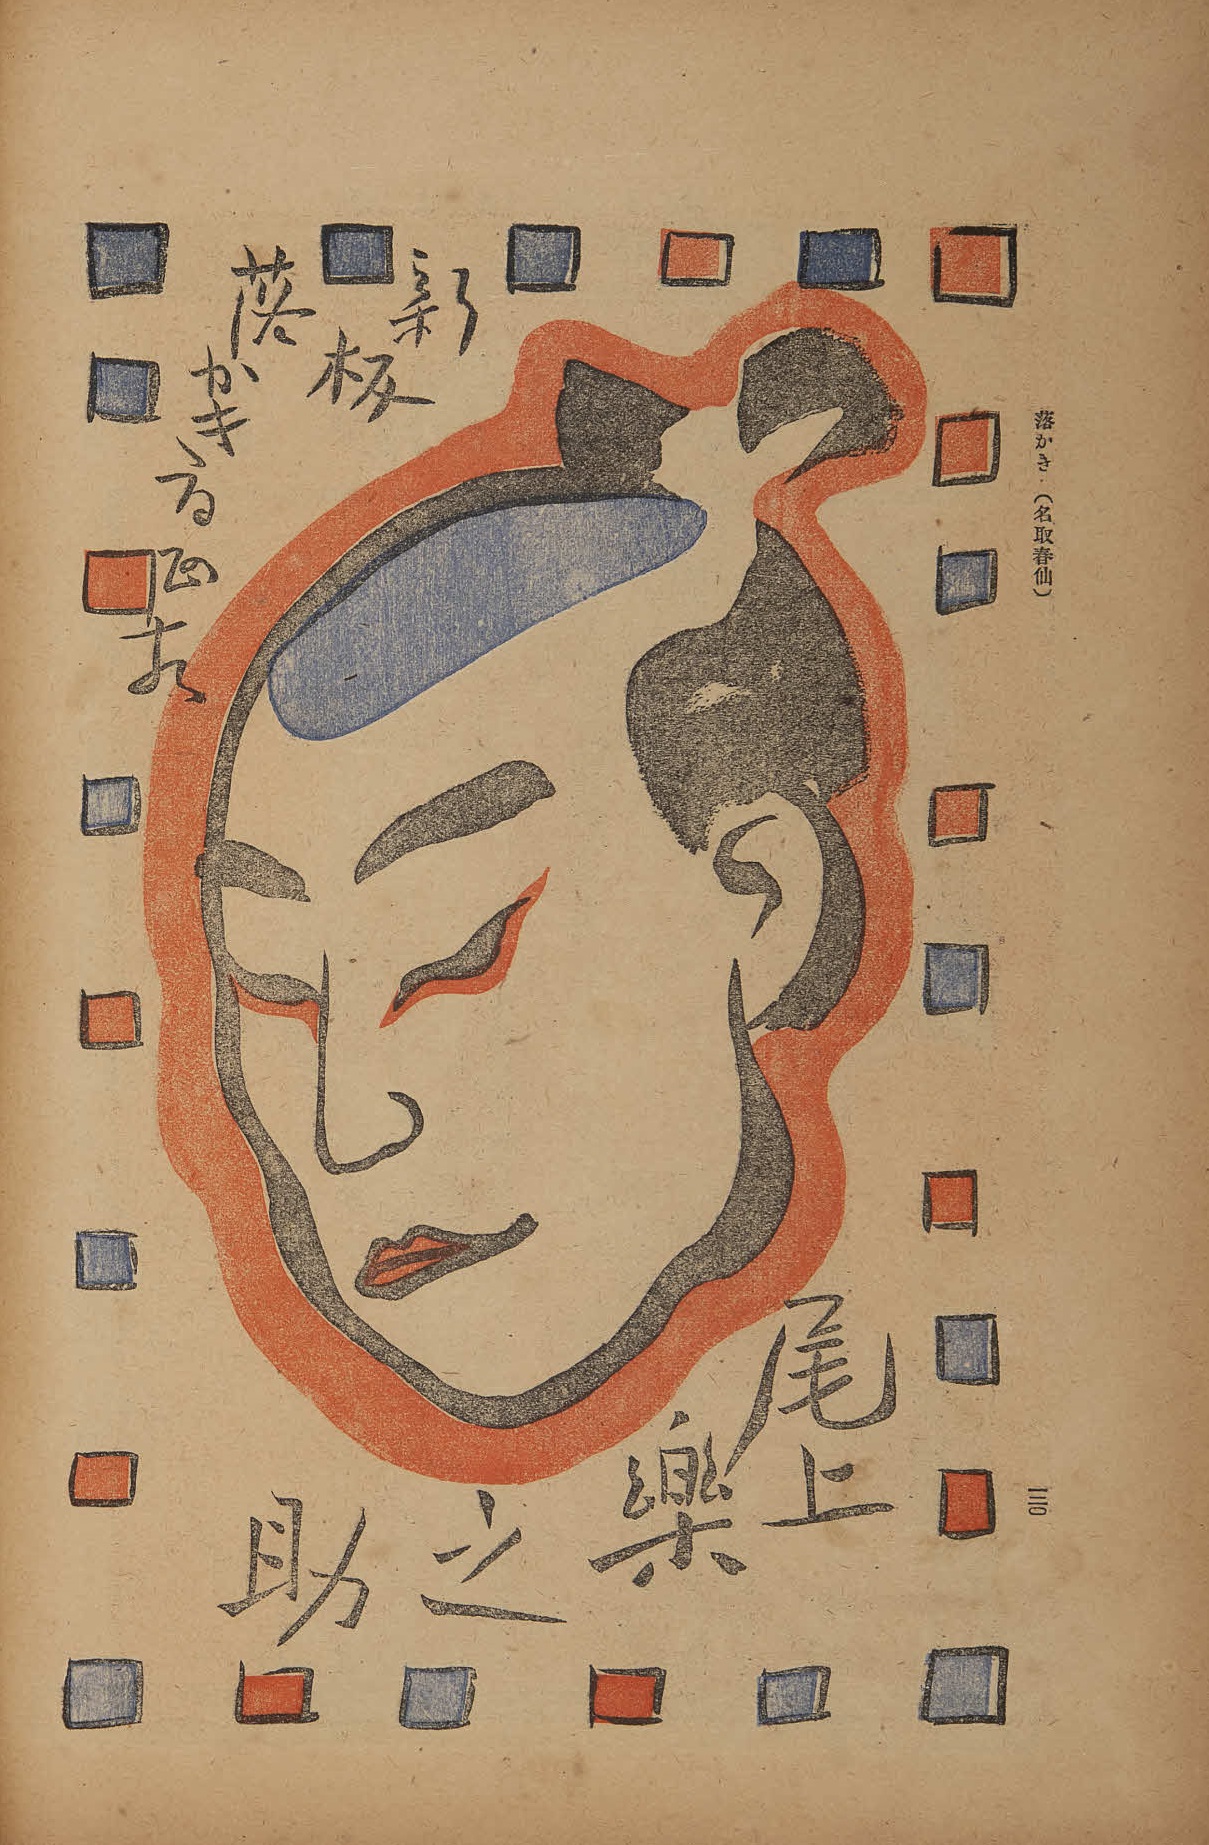 落かき (名取春仙)
新板
落かき百面相
尾上
樂之助
三〇